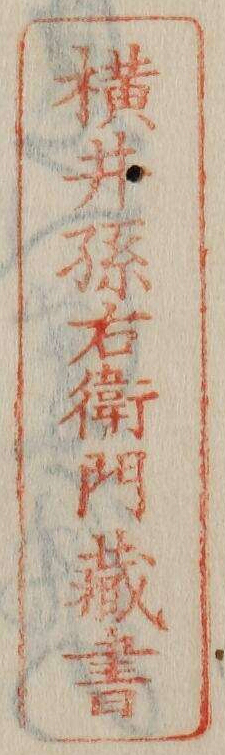 横井孫右衛門藏書